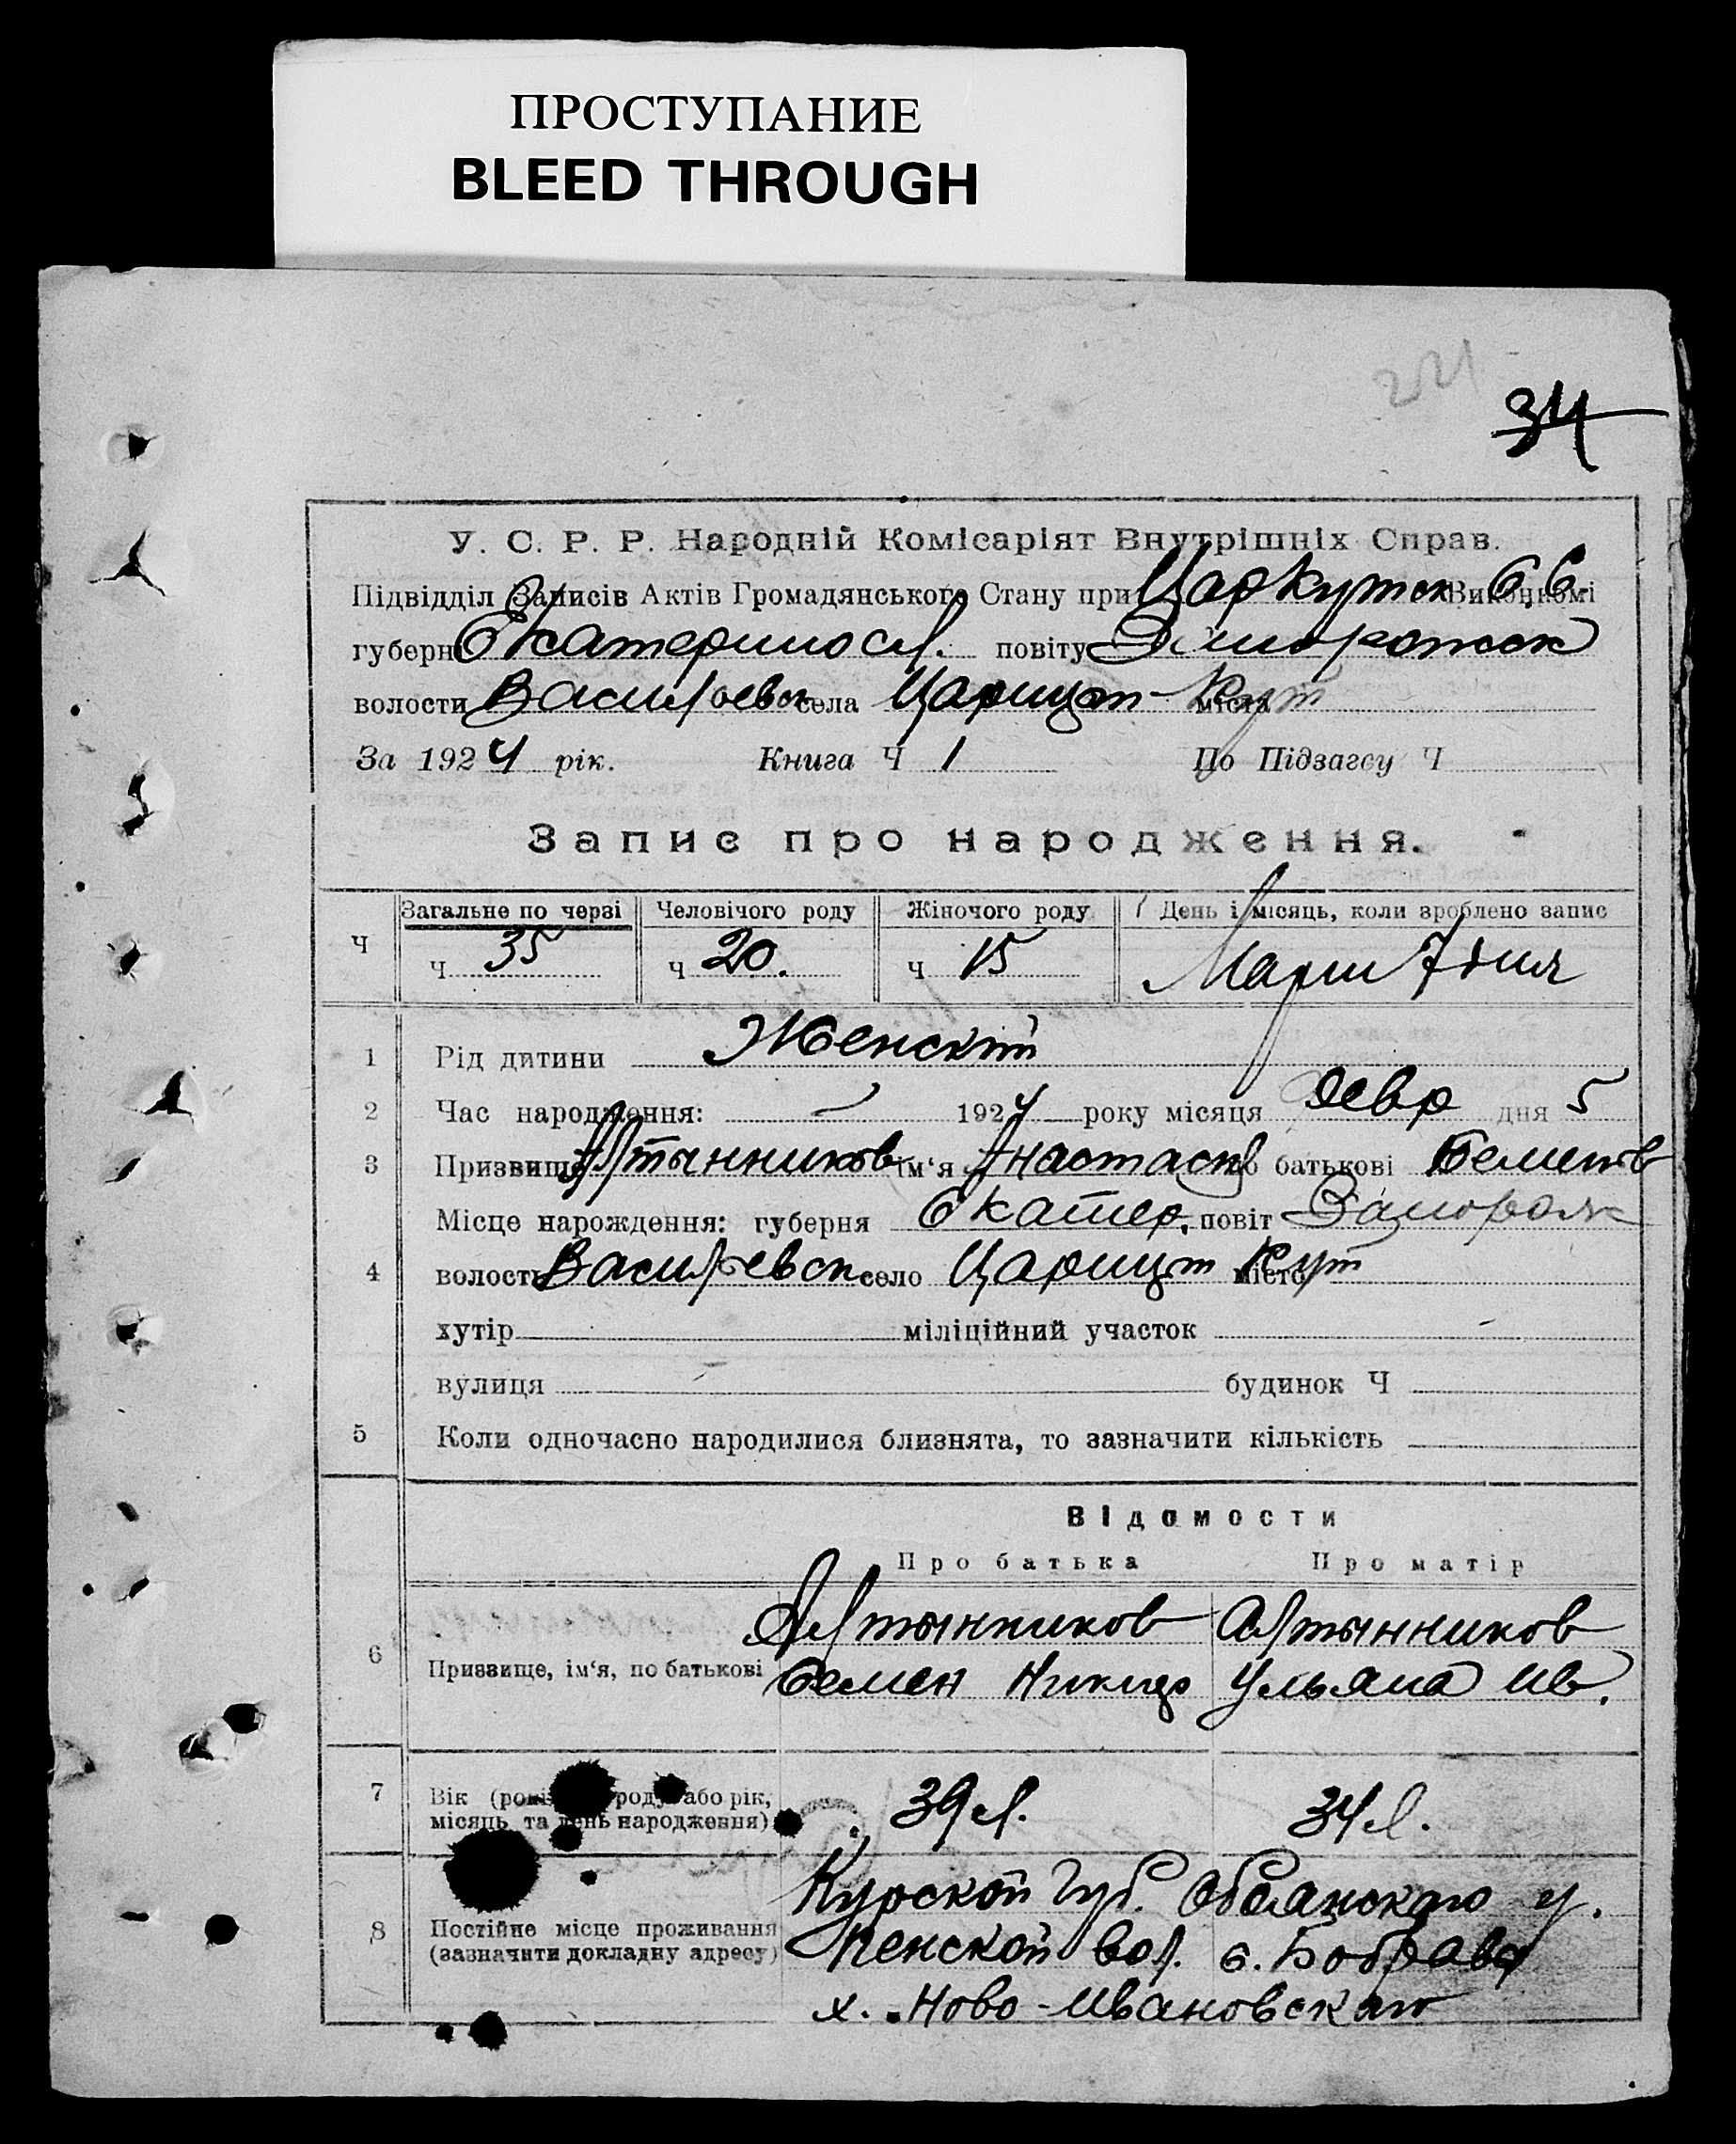 ПРОСТУПАНИЕ
BLEED THROUGH
221
34
У. С. Р. Р. Народній Комісаріят Внутрішніх Справ.
Підвідділ Записів Актів Громадянського Стану при Царкутск С.С. Виконкомі
губерн Екатериносл. повіту Запорожск
волости Васильевск села Царицын-Кут міста
За 1924 рік. Книга Ч 1 По Підзагсу Ч
Запис про народження.
Загальне по черзі Человічого роду Жіночого роду День і місяць, коли зроблено запис
Ч Ч 35 Ч 20. Ч 15 Марта 7 дня
1 Рід дитини Женский
2 Час народження: 1924 року місяця Февр дня 5
3 Призвище Алтынников ім‘я Анастасия по батькові Семенов
Місце нарождення: губерня Екатер. повіт Запорож
4 волость Васильевск село Царицын Кут місто
хутір міліційний участок
вулиця будинок Ч
5 Коли одночасно народилися близнята, то зазначити кількість
Відомости
Про батька Про матір
Алтынников Алтынников
6 Призвище, ім‘я, по батькові Семен Никиф Ульяна Ив.
7 Вік (років роду або рік, 39 л. 34 л.
місяць та день народження)
Курской Губ. Обоянского у.
8 Постійне місце проживання Пенской вол. с. Бобрава
(зазначити докладну адресу)
х. Ново-Ивановского